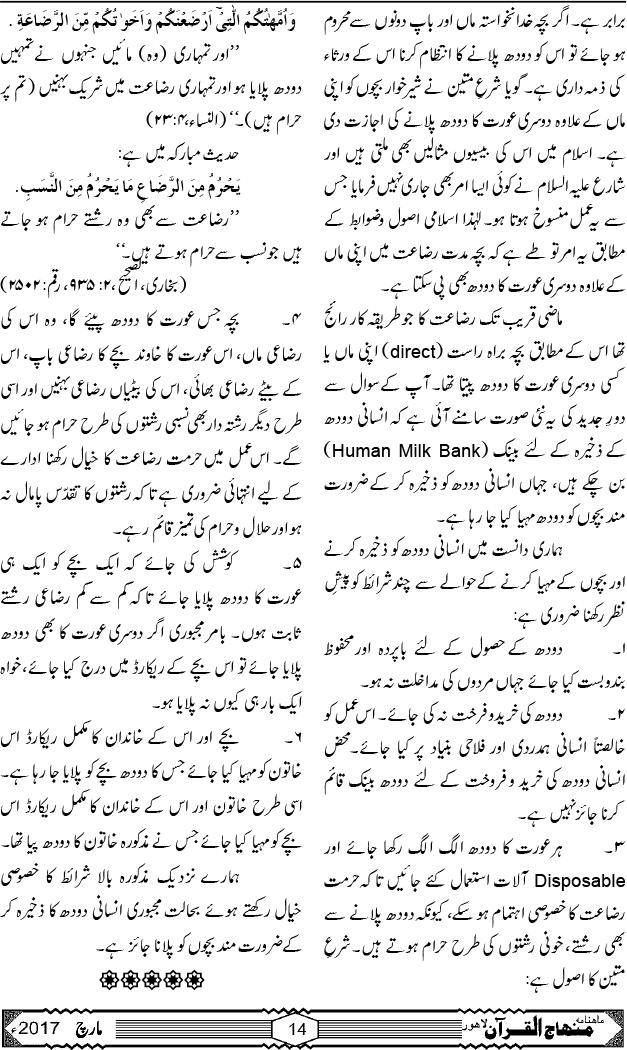 برابر ہے۔ اگر بچہ خدانخواستہ ماں اور باپ دونوں سے محروم
ہو جائے تو اس کو دودھ پلانے کا انتظام کرنا اس کے ورثاء
کی ذمہ داری ہے۔ گویا شرع متین نے شیرخوار بچوں کو اپنی
ماں کے علاوہ دوسری عورت کا دودھ پلانے کی اجازت دی
ہے۔ اسلام میں اس کی بیسیوں مثالیں بھی ملتی ہیں اور
شارع علیہ السلام نے کوئی ایسا امر بھی جاری نہیں فرمایا جس
سے یہ عمل منسوخ ہوتا ہو۔ لہٰذا اسلامی اصول وضوابط کے
مطابق یہ امر تو طے ہے کہ بچہ مدت رضاعت میں اپنی ماں
کے علاوہ دوسری عورت کا دودھ بھی پی سکتا ہے۔
ماضی قریب تک رضاعت کا جو طریقہ کار رائج
تھا اس کے مطابق بچہ براہ راست (direct) اپنی ماں یا
کسی دوسری عورت کا دودھ پیتا تھا۔ آپ کے سوال سے
دورِ جدید کی یہ نئی صورت سامنے آئی ہے کہ انسانی دودھ
کے ذخیرہ کے لئے بینک (Human Milk Bank)
بن چکے ہیں، جہاں انسانی دودھ کو ذخیرہ کر کے ضرورت
مند بچوں کو دودھ مہیا کیا جا رہا ہے۔
ہماری دانست میں انسانی دودھ کو ذخیرہ کرنے
اور بچوں کے مہیا کرنے کے حوالے سے چند شرائط کو پیشِ
نظر رکھنا ضروری ہے:
۱۔ دودھ کے حصول کے لئے باپردہ اور محفوظ
بندوبست کیا جائے جہاں مردوں کی مداخلت نہ ہو۔
۲۔ دودھ کی خرید وفرخت نہ کی جائے۔ اس عمل کو
خالصتاً انسانی ہمدردی اور فلاحی بنیاد پر کیا جائے۔ محض
انسانی دودھ کی خرید و فروخت کے لئے دودھ بینک قائم
کرنا جائز نہیں ہے۔
۳۔ ہر عورت کا دودھ الگ الگ رکھا جائے اور
Disposable آلات استعمال کئے جائیں تاکہ حرمت
رضاعت کا خصوصی اہتمام ہو سکے، کیونکہ دودھ پلانے سے
بھی رشتے، خونی رشتوں کی طرح حرام ہوتے ہیں۔ شرع
متین کا اصول ہے:
وَاُمَّهٰتُكُمُ الّٰتِىْٓ اَرْضَعْنَكُمْ وَاَخَوٰتُكُمْ مِّنَ الرَّضَاعَةِ.
’’اور تمہاری (وہ) مائیں جنہوں نے تمہیں
دودھ پلایا ہو اور تمہاری رضاعت میں شریک بہنیں (تم پر
حرام ہیں)۔‘‘ (النساء، ۴:۲۳)
حدیث مبارکہ میں ہے:
يَحْرُمُ مِنَ الرَّضَاعِ مَا يَحْرُمُ مِنَ النَّسَبِ.
’’رضاعت سے بھی وہ رشتے حرام ہو جاتے
ہیں جو نسب سے حرام ہوتے ہیں۔‘‘
(بخاری، الصحیح، ۲: ۹۳۵، رقم: ۲۵۰۲)
۴۔ بچہ جس عورت کا دودھ پیئے گا، وہ اس کی
رضاعی ماں، اس عورت کا خاوند بچے کا رضاعی باپ، اس
کے بیٹے رضاعی بھائی، اس کی بیٹیاں رضاعی بہنیں اور اسی
طرح دیگر رشتہ دار بھی نسبی رشتوں کی طرح حرام ہو جائیں
گے۔ اس عمل میں حرمت رضاعت کا خیال رکھنا ادارے
کے لیے انتہائی ضروری ہے تاکہ رشتوں کا تقدّس پامال نہ
ہو اور حلال وحرام کی تمیز قائم رہے۔
۵۔ کوشش کی جائے کہ ایک بچے کو ایک ہی
عورت کا دودھ پلایا جائے تاکہ کم سے کم رضاعی رشتے
ثابت ہوں۔ بامر مجبوری اگر دوسری عورت کا بھی دودھ
پلایا جائے تو اس بچے کے ریکارڈ میں درج کیا جائے، خواہ
ایک بار ہی کیوں نہ پلایا ہو۔
۶۔ بچے اور اس کے خاندان کا مکمل ریکارڈ اس
خاتون کو مہیا کیا جائے جس کا دودھ بچے کو پلایا جا رہا ہے۔
اسی طرح خاتون اور اس کے خاندان کا مکمل ریکارڈ اس
بچے کو مہیا کیا جائے جس نے مذکورہ خاتون کا دودھ پیا تھا۔
ہمارے نزدیک مذکورہ بالا شرائط کا خصوصی
خیال رکھتے ہوئے بحالت مجبوری انسانی دودھ کا ذخیرہ کر
کے ضرورت مند بچوں کو پلانا جائز ہے۔
ماہنامہ منہاج القرآن لاہور 14 مارچ 2017ء